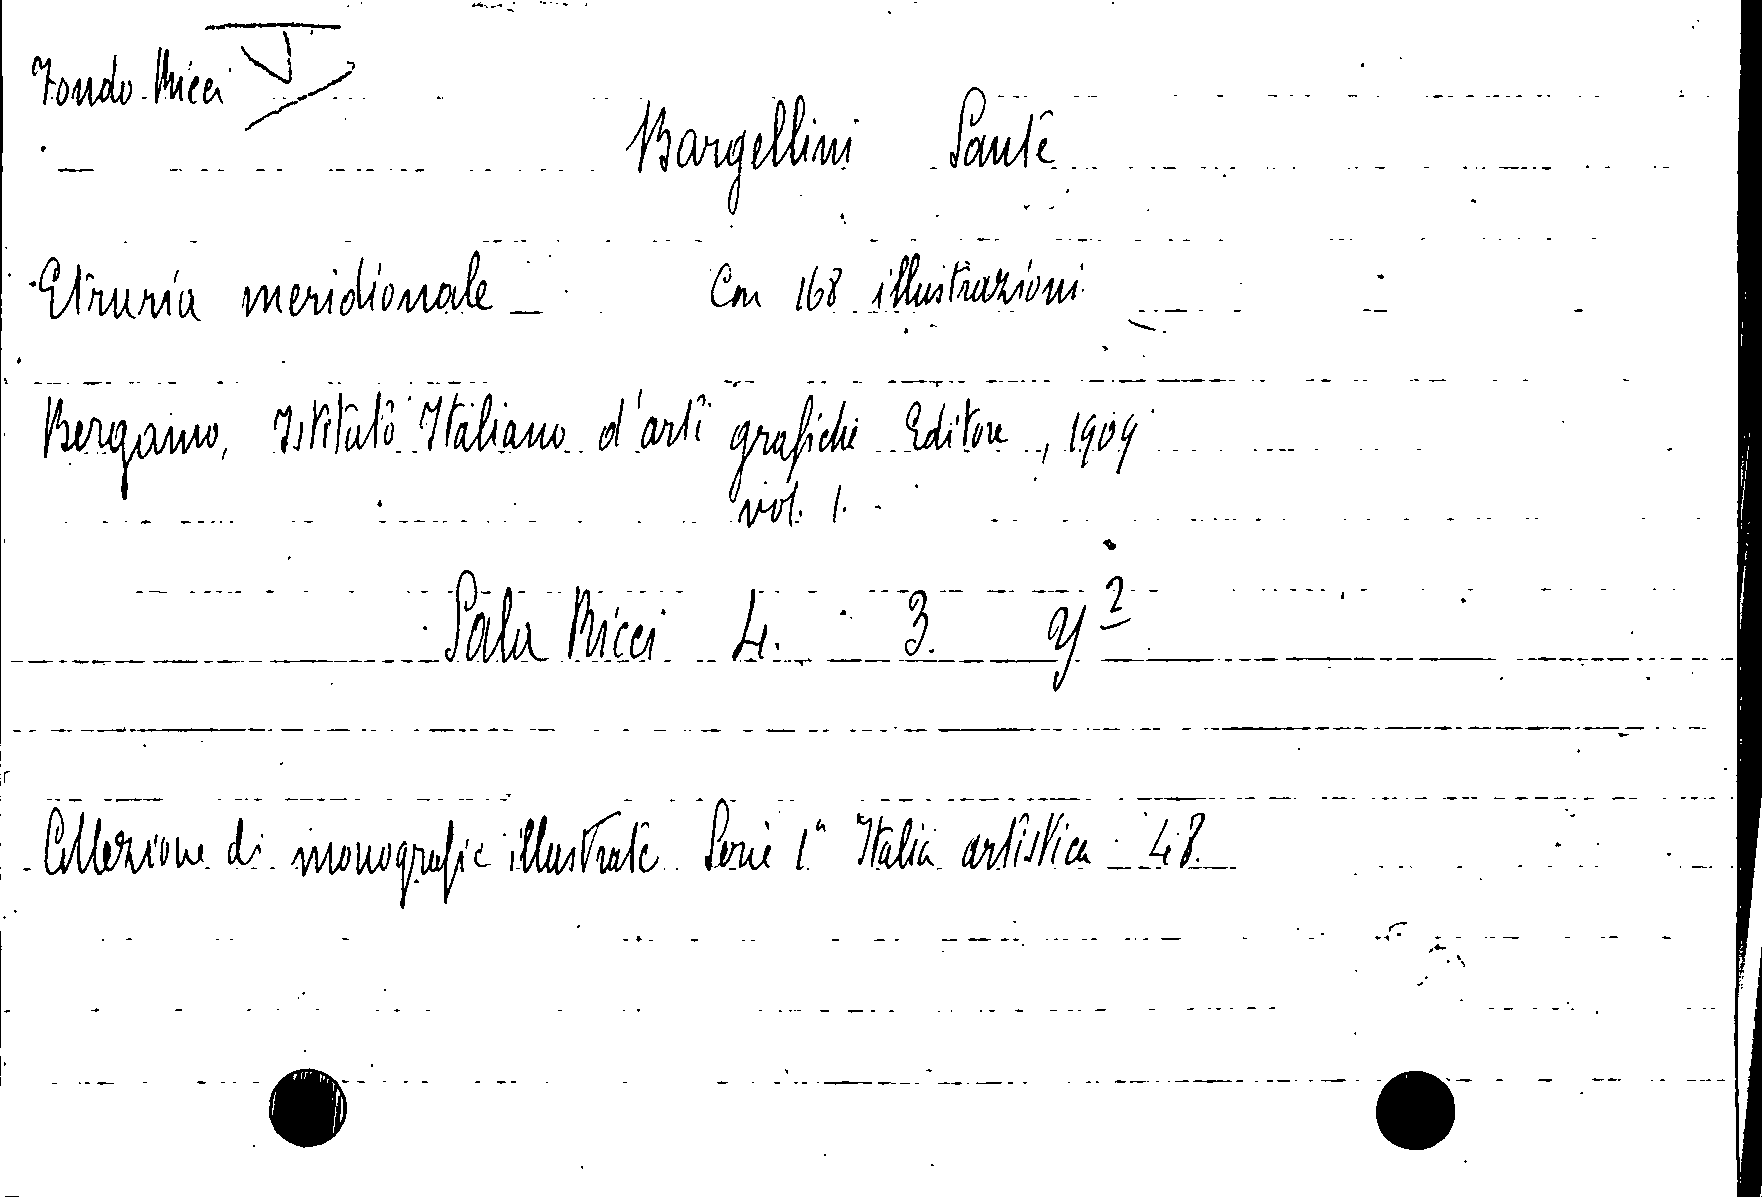 Fondo Ricci V
Bargellini Sante
Etruria meridionale Con 168 illustrazioni
Bergamo, Istituto Italiano d'arti grafiche Editore, 1909
vol. 1.
Sala Ricci 4. 3. y²
Collezione di monografie illustrate Serie 1ª Italia artistica 48.